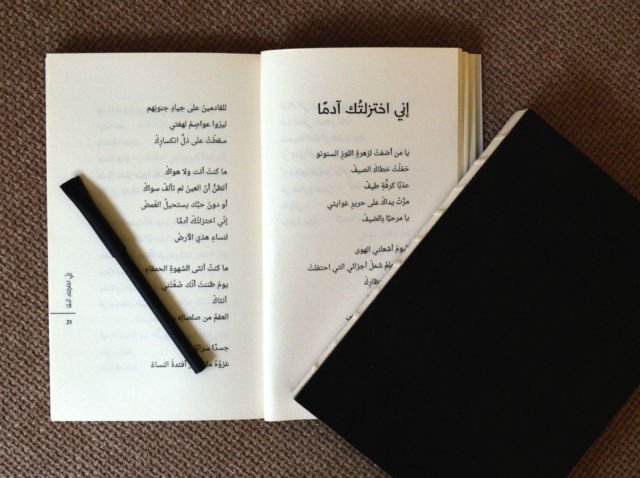 إني اختزلتُك آدمًا
يا من أضفتَ لزهرةِ اللوزِ السنونو
حَمَلَتْ خطاكَ الصيفْ
عذبًا كرفّةِ طيفْ
مرَّتْ يداكَ على حريرِ غوايتي
يا مرحبًا بالضيفْ
أشعلني الهوى
شملَ أجزائي التي احتفلتْ
للقادمينَ على جيادِ جنونِهم
ليرَوا عواصِمَ لهفتي
سقطَتْ على ذلِّ انكسارِكْ
ما كنتُ أنت ولا هواكْ
أتظنُّ أنّ العينَ لم تألفْ سواكْ
أو دونَ حبِّك يستحيلُ الغمضْ
إنّي اختزلتُكَ آدمًا
لنساءِ هذي الأرضْ
ما كنتُ أنثى الشهوةِ الحمقاءِ
يومَ ظننتَ أنّك صُغْتَني
أنثاكْ
العقمُ من صلصالِه
جسدًا
غزوُهُ أفئدةَ النساءْ
إني اختزلتك آدمًا
21